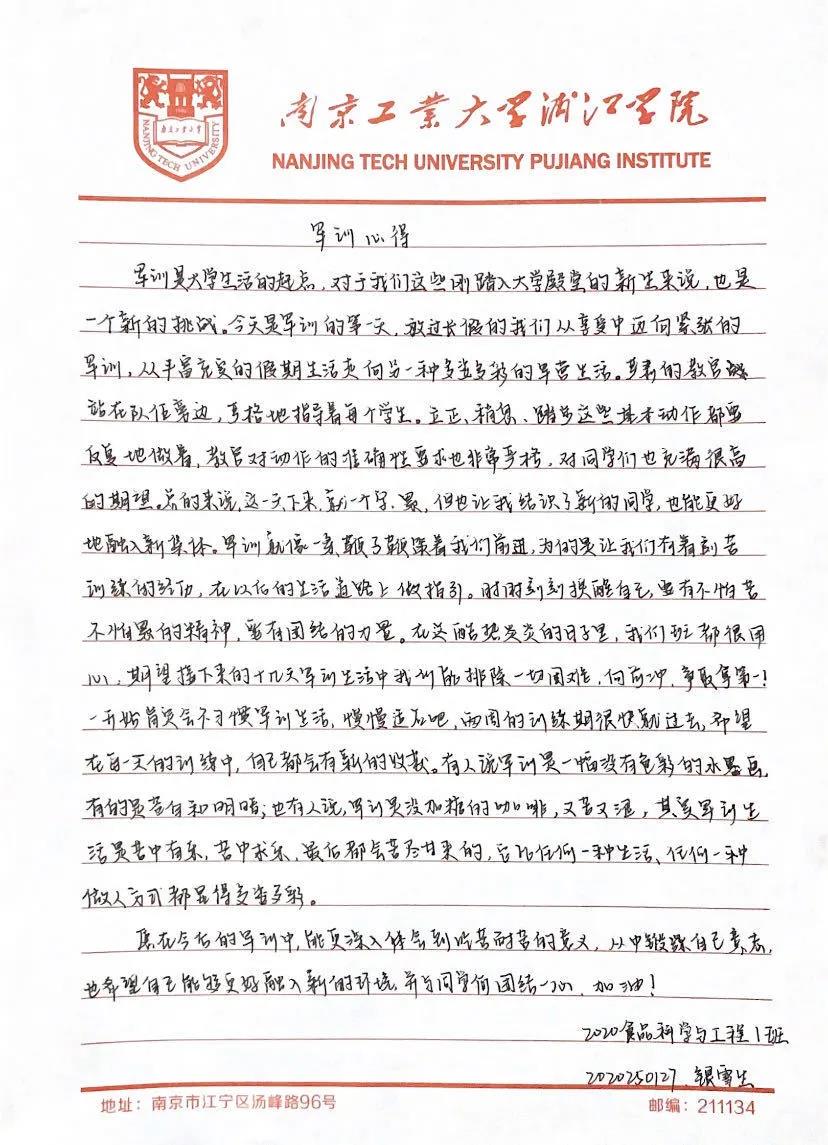 南京工業大学浦江学院
NANJING TECH UNIVERSITY PUJIANG INSTITUTE
南京工業大学
NANJING TECH UNIVERSITY
军训心得
军训是大学生活的起点，对于我们这些刚踏入大学殿堂的新生来说，也是
一个新的挑战。今天是军训的第一天，放过长假的我们从享受中迈向紧张的
军训，从丰富充实的假期生活走向另一种多姿多彩的军营生活。严肃的教官
站在队伍旁边，严格地指导着每个学生。立正、稍息、踏步这些基本动作都要
反复地做着，教官对动作的准确性要求也非常严格，对同学们也充满很高
的期望。总的来说，这一天下来，就一个字，累，但也让我结识了新的同学，也能更好
地融入新集体。军训就像一条鞭子鞭策着我们前进，为的是让我们有着刻苦
训练的经历，在以后的生活道路上做指引。时时刻刻提醒自己，要有不怕苦
不怕累的精神，要有团结的力量。在这酷热炎炎的日子里，我们班都很用
心，期望接下来的十几天军训生活中我们能排除一切困难，向前冲，争取拿第一！
一开始肯定会不习惯军训生活，慢慢适应吧，两周的训练期很快就过去，希望
在每一天的训练中，自己都会有新的收获。有人说军训是一幅没有色彩的水墨画，
有的是苍白和明暗；也有人说，军训是没加糖的咖啡，又苦又涩，其实军训生
活是苦中有乐，苦中求乐，最后都会苦尽甘来的，它比任何一种生活、任何一种
做人方式都显得多姿多彩。
愿在今后的军训中，能更深入体会到吃苦耐苦的意义，从中锻炼自己意志，
也希望自己能够更好融入新的环境，并与同学们团结一心，加油！
2020食品科学与工程1班
2020250127 银雪生
地址：南京市江宁区汤峰路96号
邮编：211134